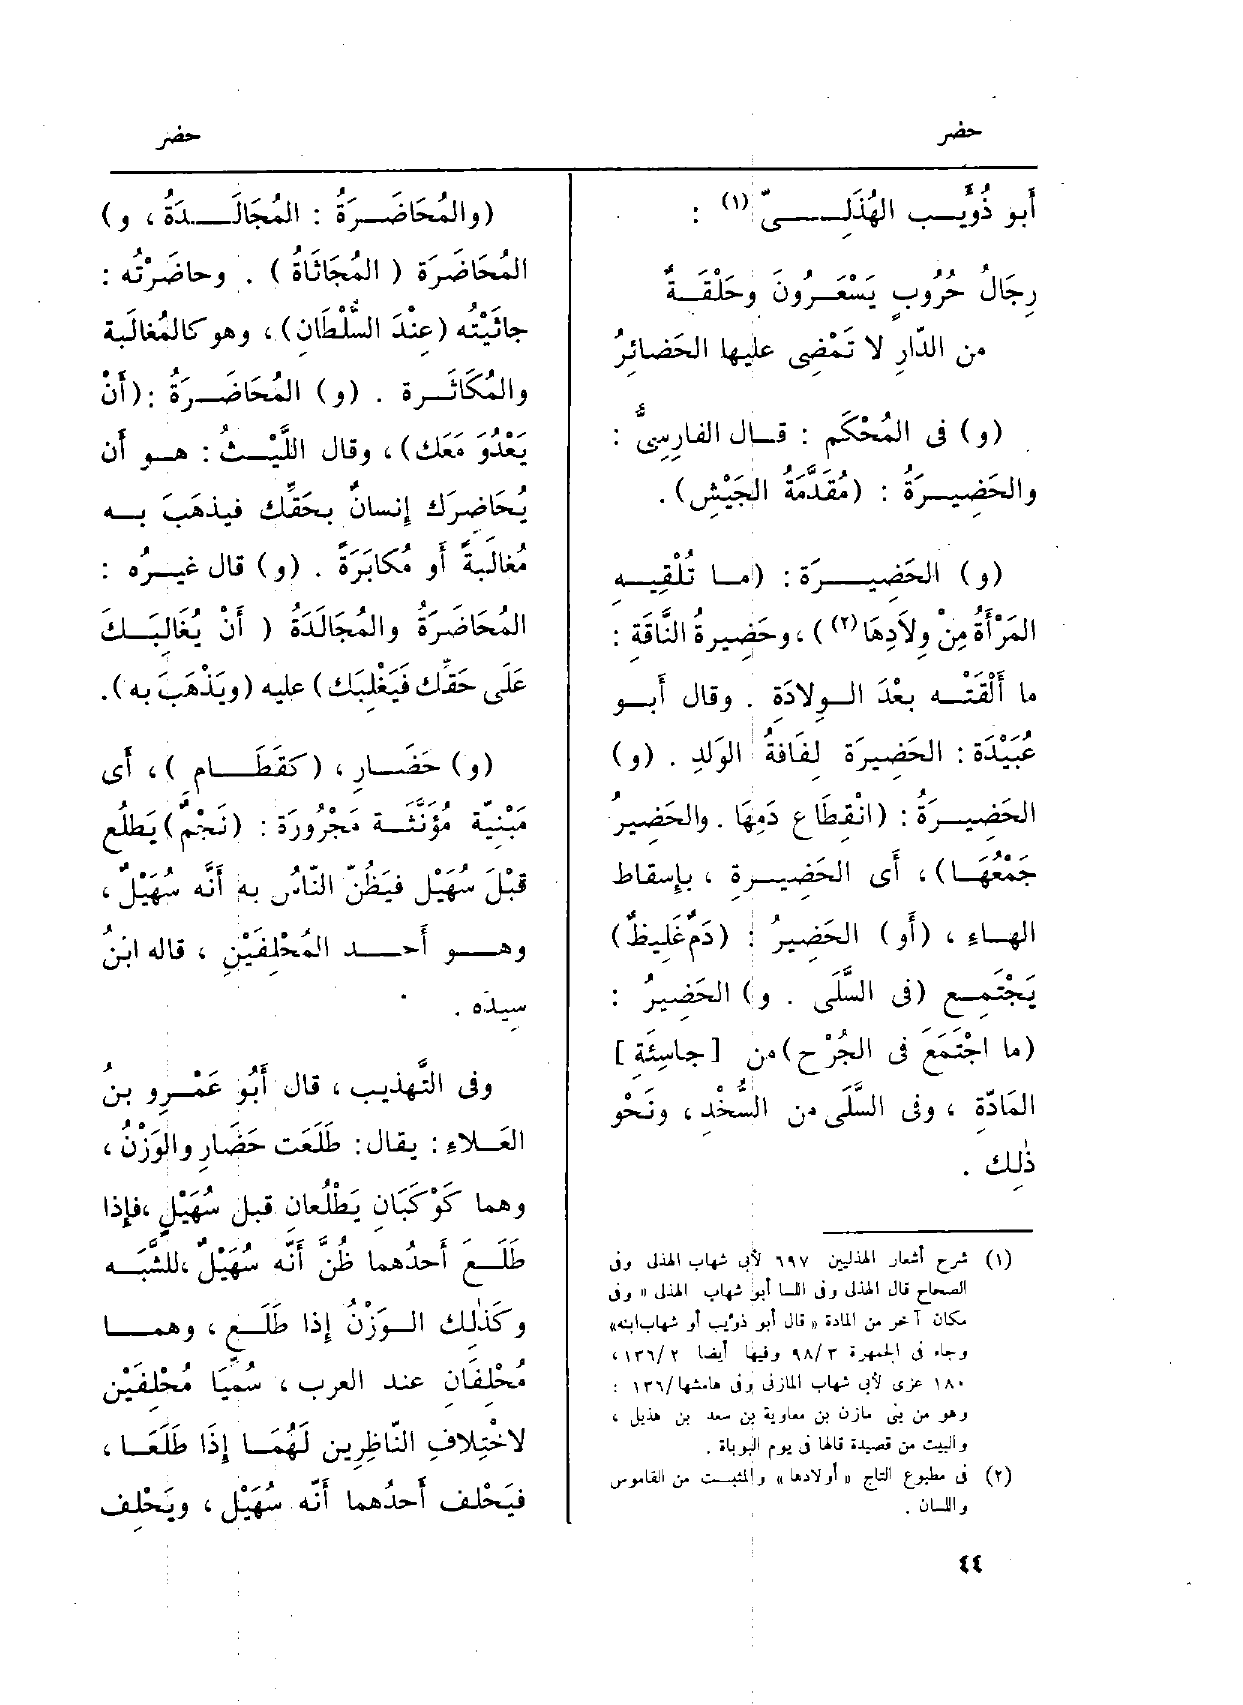 حضر
حضر
أَبو ذُؤَيْب الهُذَلِىّ (١) :
رِجَالُ حُرُوبٍ يَسْعَرُونَ وحَلْقَةٌ
من الدّارِ لا تَمْضِى عليها الحَضائِرُ
(و) فى المُحْكَم : قال الفارِسىُّ :
والحَضِيرَةُ : (مُقَدَّمَةُ الجَيْشِ).
(و) الحَضِيرَة : (ما تُلْقِيه
المَرْأَةُ مِنْ وِلادِهَا(٢)) ، وحَضِيرةُ النَّاقَة :
ما أَلْقَتْه بعْدَ الوِلادَة . وقال أَبو
عُبَيْدَة : الحَضِيرَة لِفَافةُ الوَلَدِ . (و)
الحَضِيرَةُ : (انْقِطَاع دَمِهَا . والحَضِيرُ
جَمْعُهَا) ، أَى الحَضِيرة ، بإِسقاط
الهاء ، (أَو) الحَضِيرُ : (دَمٌ غَلِيظٌ)
يَجْتَمِع (فى السَّلَى . و) الحَضِيرُ :
(ما اجْتَمَعَ فى الجُرْحِ) من [جاسِئَةِ]
المَادّةِ ، وفى السَّلَى من السُّخْدِ ، ونَحْوِ
ذٰلِك .
(١) شرح أشعار الهذليين ٦٩٧ لأبى شهاب الهذلى وفى
الصحاح قال الهذلى وفى اللسا أبو شهاب الهذلى « وفى
مكان آخر من المادة « قال أبو ذؤيب أو شهاب ابنه»
وجاء فى الجمهرة ٩٨/٣ وفيها أيضا ١٣٦/٢ ،
١٨٠ عزى لأبى شهاب المازنى وفى هامشها/١٣٦ :
وهو من بنى مازن بن معاوية بن سعد بن هذيل ،
والبيت من قصيدة قالها فى يوم البوباة .
(٢) فى مطبوع التاج « أولادها » والمثبت من القاموس
واللسان .
(والمُحَاضَرَةُ : المُجَالَدَةُ ، و)
المُحَاضَرَة ( المُجَاثَاةُ ) . وحاضَرْتُه :
جاثَيْتُه (عِنْدَ السُّلْطَان) ، وهو كالمُغالَبة
والمُكَاثَرة . (و) المُحَاضَرَةُ :(أَنْ
يَعْدُوَ مَعَك) ، وقال اللَّيْثُ : هو أَن
يُحَاضِرَك إِنسانٌ بحَقِّك فيذهَبَ به
مُغالَبَةً أَو مُكابَرَةً . (و) قال غيرُه :
المُحَاضَرَةُ والمُجَالَدَةُ ( أَنْ يُغَالِبَكَ
عَلَى حَقِّك فَيَغْلِبَك) عليه (ويَذْهَبَ به).
(و) حَضَارِ ، (كقَطَامِ ) ، أَى
مَبْنِيّة مُؤَنَّثَة مَجْرُورَة : (نَجْمٌ) يَطلُع
قبْلَ سُهَيْل فيَظُنّ النّاسُ به أَنَّه سُهَيْلٌ ،
وهو أَحد المُحْلِفَيْنِ ، قاله ابنُ
سِيدَه .
وفى التَّهذيب ، قال أَبُو عَمْرو بنُ
العَلاء : يقال : طَلَعَت حَضَارِ والوَزْنُ ،
وهما كَوْكَبَانِ يَطْلُعانِ قبل سُهَيْلٍ ،فإِذا
طَلَعَ أَحدُهما ظُنَّ أَنَّه سُهَيْلٌ ،للشَّبَه
وكَذٰلِك الوَزْنُ إِذا طَلَع ، وهما
مُحْلِفَانِ عند العرب ، سُمِّيَا مُحْلِفَيْن
لاخْتِلافِ النّاظِرِين لَهُمَا إِذَا طَلَعَا ،
فيَحْلف أَحدُهما أَنّه سُهَيْل ، ويَحْلف
٤٤